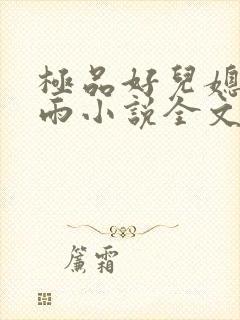 極品好兒媳
雨小說全文
簾霜